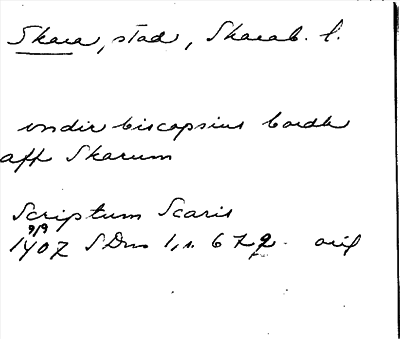 Skara, stad, Skarab. l.
undir biscopsins bordh
aff Skarum
Scriptum Scaris
9/9
1407 SDns 1, s. 672. orig